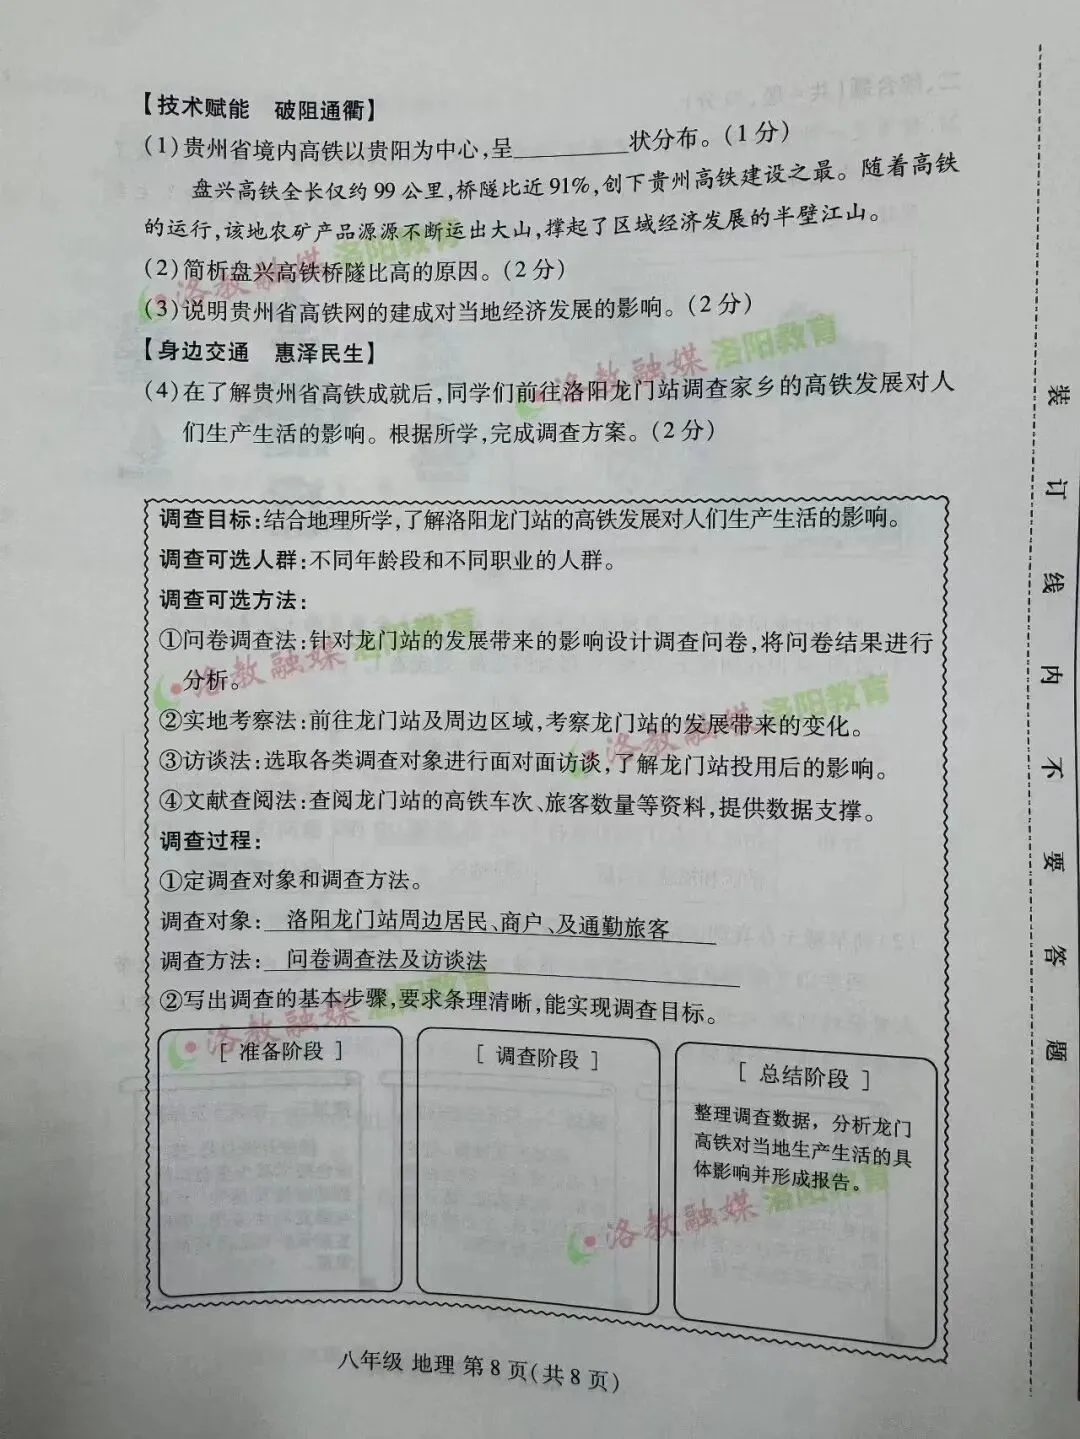 【技术赋能　破阻通衢】
(1)贵州省境内高铁以贵阳为中心,呈________状分布。(1分)
盘兴高铁全长仅约99公里,桥隧比近91%,创下贵州高铁建设之最。随着高铁
的运行,该地农矿产品源源不断运出大山,撑起了区域经济发展的半壁江山。
(2)简析盘兴高铁桥隧比高的原因。(2分)
(3)说明贵州省高铁网的建成对当地经济发展的影响。(2分)
【身边交通　惠泽民生】
(4)在了解贵州省高铁成就后,同学们前往洛阳龙门站调查家乡的高铁发展对人
们生产生活的影响。根据所学,完成调查方案。(2分)
调查目标:结合地理所学,了解洛阳龙门站的高铁发展对人们生产生活的影响。
调查可选人群:不同年龄段和不同职业的人群。
调查可选方法:
①问卷调查法:针对龙门站的发展带来的影响设计调查问卷,将问卷结果进行
分析。
②实地考察法:前往龙门站及周边区域,考察龙门站的发展带来的变化。
③访谈法:选取各类调查对象进行面对面访谈,了解龙门站投用后的影响。
④文献查阅法:查阅龙门站的高铁车次、旅客数量等资料,提供数据支撑。
调查过程:
①定调查对象和调查方法。
调查对象: 洛阳龙门站周边居民、商户、及通勤旅客
调查方法: 问卷调查法及访谈法
②写出调查的基本步骤,要求条理清晰,能实现调查目标。
[ 准备阶段 ]
[ 调查阶段 ]
[ 总结阶段 ]
整理调查数据，分析龙门
高铁对当地生产生活的具
体影响并形成报告。
八年级 地理 第8页(共8页)
装订线内不要答题
洛教融媒 洛阳教育
洛教融媒 洛阳教育
洛教融媒 洛阳教育
洛教融媒 洛阳教育
洛教融媒 洛阳教育
洛教融媒 洛阳教育